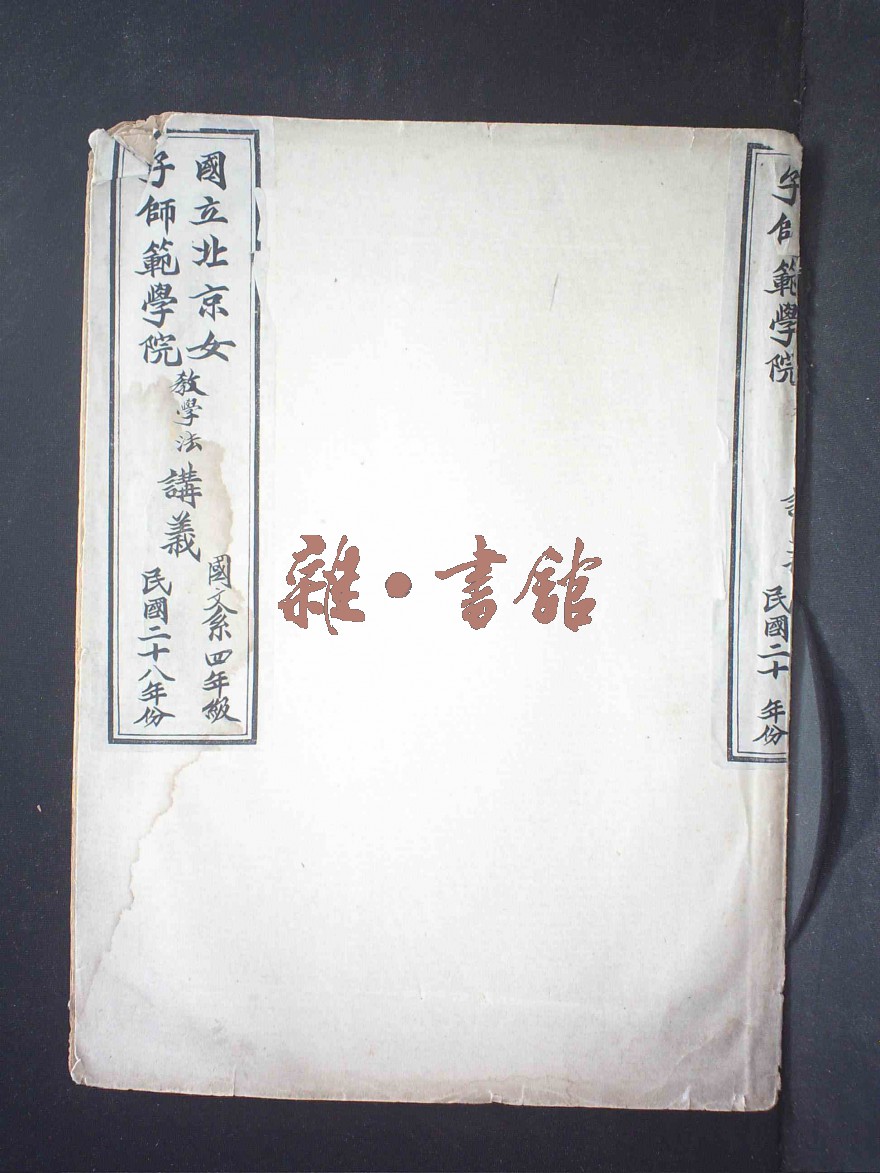 國立北京女
子師範學院
教學法
講義
國文系四年級
民國二十八年份
子師範學院
民國二十 年份
雜·書館